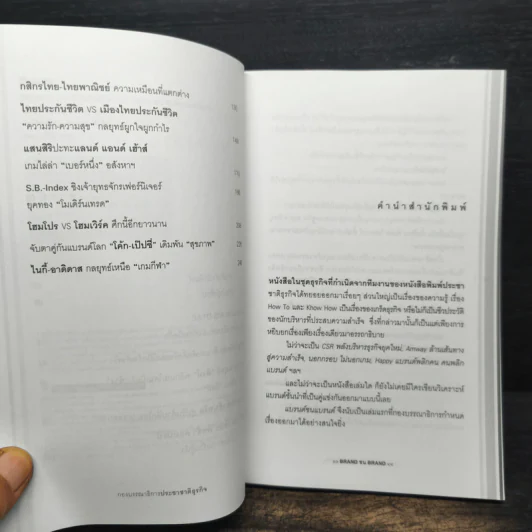 กสิกรไทย-ไทยพาณิชย์ ความเหมือนที่แตกต่าง
ไทยประกันชีวิต VS เมืองไทยประกันชีวิต
“ความรัก-ความสุข” กลยุทธ์ผูกใจผูกกำไร
แสนสิริปะทะแลนด์ แอนด์ เฮ้าส์
เกมไล่ล่า “เบอร์หนึ่ง” อสังหาฯ
S.B.-Index ชิงเจ้ายุทธจักรเฟอร์นิเจอร์
ยุคทอง “โมเดิร์นเทรด”
โฮมโปร VS โฮมเวิร์ค ศึกนี้อีกยาวนาน
จับตาคู่กัดแบรนด์โลก “โค้ก-เป๊ปซี่” เดิมพัน “สุขภาพ”
ไนกี้-อาดิดาส กลยุทธ์เหนือ “เกมกีฬา”
กองบรรณาธิการประชาชาติธุรกิจ
คำนำสำนักพิมพ์
หนังสือในชุดธุรกิจที่กำเนิดจากทีมงานของหนังสือพิมพ์ประชา
ชาติธุรกิจได้ทยอยออกมาเรื่อยๆ ส่วนใหญ่เป็นเรื่องของความรู้ เรื่อง
How To และ Know How เป็นเรื่องของเกร็ดธุรกิจ หรือไม่ก็เป็นชีวประวัติ
ของนักบริหารที่ประสบความสำเร็จ ซึ่งที่กล่าวมานั้นก็เป็นแต่เพียงการ
หยิบยกเรื่องเพียงเรื่องเดียวมาอรรถาธิบาย
ไม่ว่าจะเป็น CSR พลังบริหารธุรกิจยุคใหม่, Amway ล้านเส้นทาง
สู่ความสำเร็จ, นอกกรอบ ไม่นอกเกม, Happy แบรนด์พลิกคน คนพลิก
แบรนด์ ฯลฯ
และไม่ว่าจะเป็นหนังสือเล่มใด ก็ยังไม่เคยมีใครเขียนวิเคราะห์
แบรนด์ชั้นนำที่เป็นคู่แข่งกันออกมาแบบนี้เลย
แบรนด์ชนแบรนด์ จึงนับเป็นเล่มแรกที่กองบรรณาธิการกำหนด
เรื่องออกมาได้อย่างสนใจยิ่ง
BRAND ชน BRAND